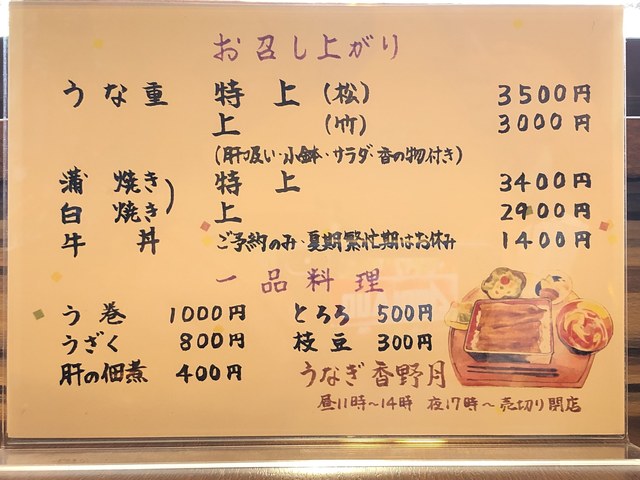 お召し上がり
うな重 特上 (松) 3500円
上 (竹) 3000円
(肝吸い・小鉢・サラダ・香の物付き)
蒲焼き) 特上 3400円
白焼き) 上 2900円
牛丼 ご予約のみ・夏期繁忙期はお休み 1400円
一品料理
う巻 1000円 とろろ 500円
うざく 800円 枝豆 300円
肝の佃煮 400円 うなぎ香野月
昼11時〜14時 夜17時〜売切り閉店